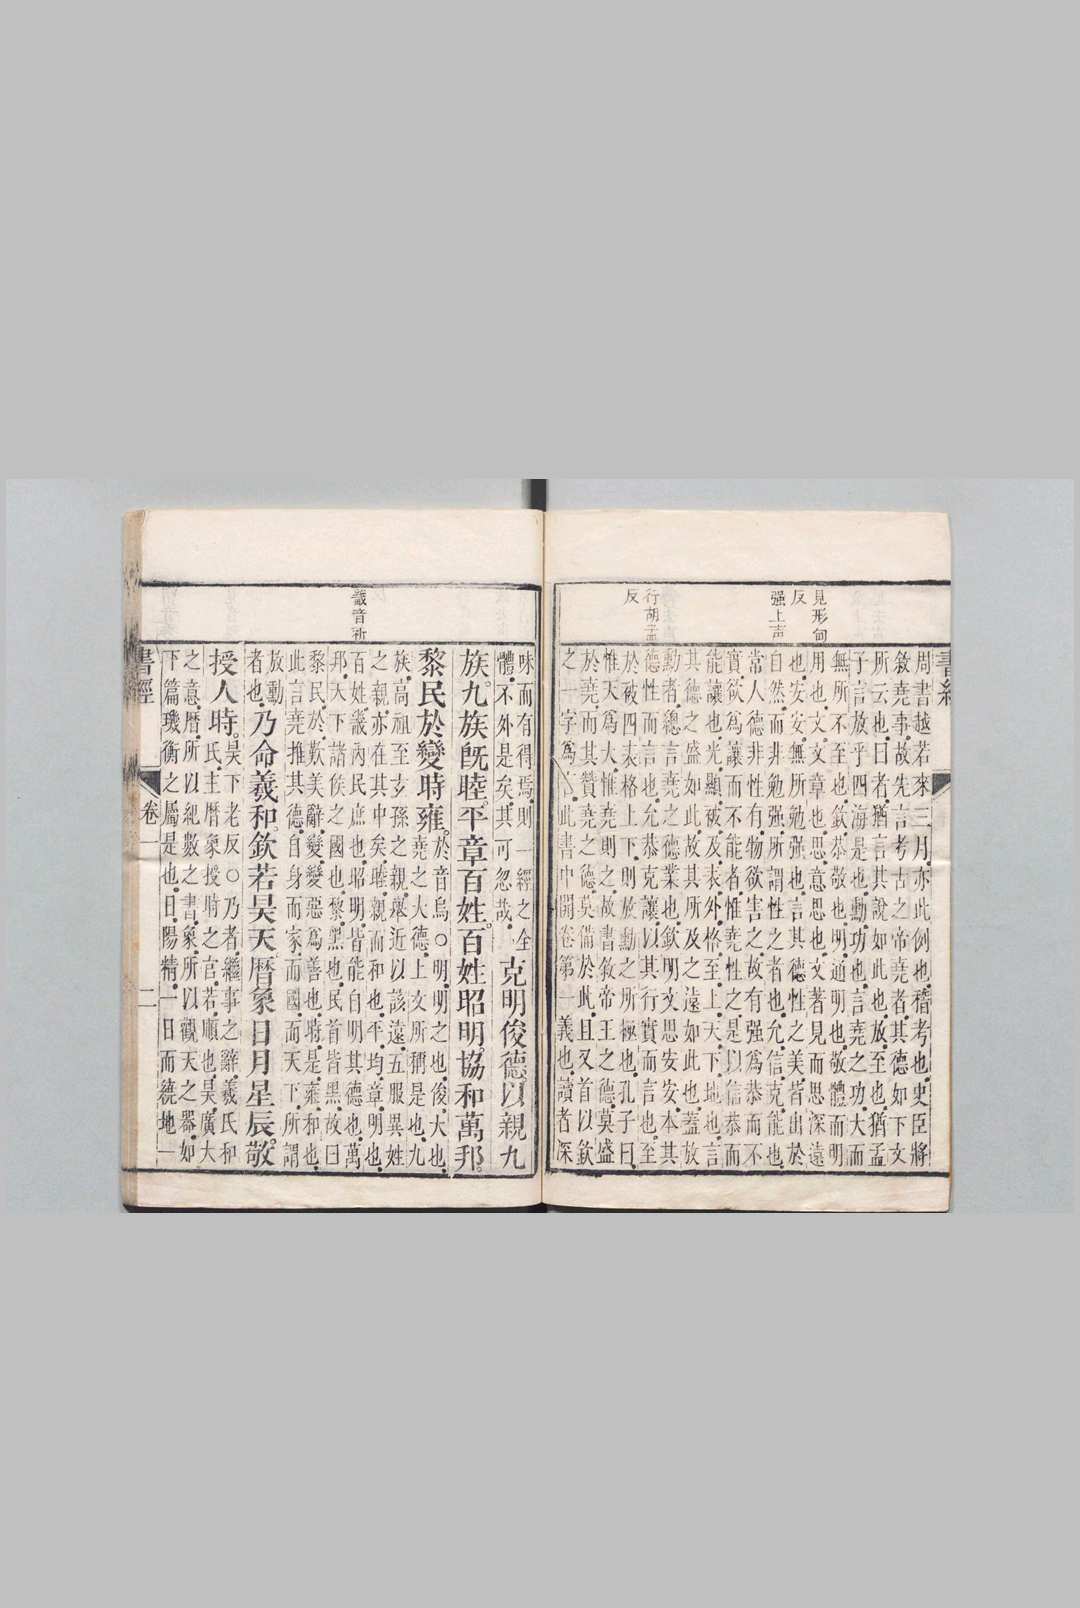 見形甸
反
强上声
行胡孟
反
周書越若來三月亦此例也稽考也史臣將
敘堯事故先言考古之帝堯者其德如下文
所云也曰者猶言其說如此也放至也猶孟
子言放乎四海是也勳功也言堯之功大而
無所不至也欽恭敬也明通明也敬體而明
用也文文章也思意思也文著見而思深遠
也安安無所勉强也言其德性之美皆出於
自然而非勉强所謂性之者也允信克能也
常人德非性有物欲害之故有强爲恭而不
實欲爲讓而不能者惟堯性之是以信恭而
能讓也光顯被及表外格至上天下地也言
其德之盛如此故其所及之遠如此也蓋放
勳者總言堯之德業也欽明文思安安本其
德性而言也允恭克讓以其行實而言也至
於被四表格上下則放勳之所極也孔子曰
惟天爲大惟堯則之故書敘帝王之德莫盛
於堯而其贊堯之德莫備於此且又首以欽
之一字爲此書中開卷第一義也讀者深
畿音祈
味而有得焉則一經之全
體不外是矣其可忽哉克明俊德以親九
族九族既睦平章百姓百姓昭明協和萬邦
黎民於變時雍於音烏○明明之也俊大也
堯之大德上文所稱是也九
族高祖至玄孫之親舉近以該遠五服異姓
之親亦在其中矣睦親而和也平均章明也
百姓畿內民庶也昭明皆能自明其德也萬
邦天下諸侯之國也黎黑也民首皆黑故曰
黎民於歎美辭變變惡爲善也時是雍和也
此言堯推其德自身而家而國而天下所謂
放勳
者也乃命羲和欽若昊天曆象日月星辰敬
授人時昊下老反○乃者繼事之辭羲氏和
氏主曆象授時之官若順也昊廣大
之意曆所以紀數之書象所以觀天之器如
下篇璣衡之屬是也日陽精一日而繞地一
書經
卷一
二